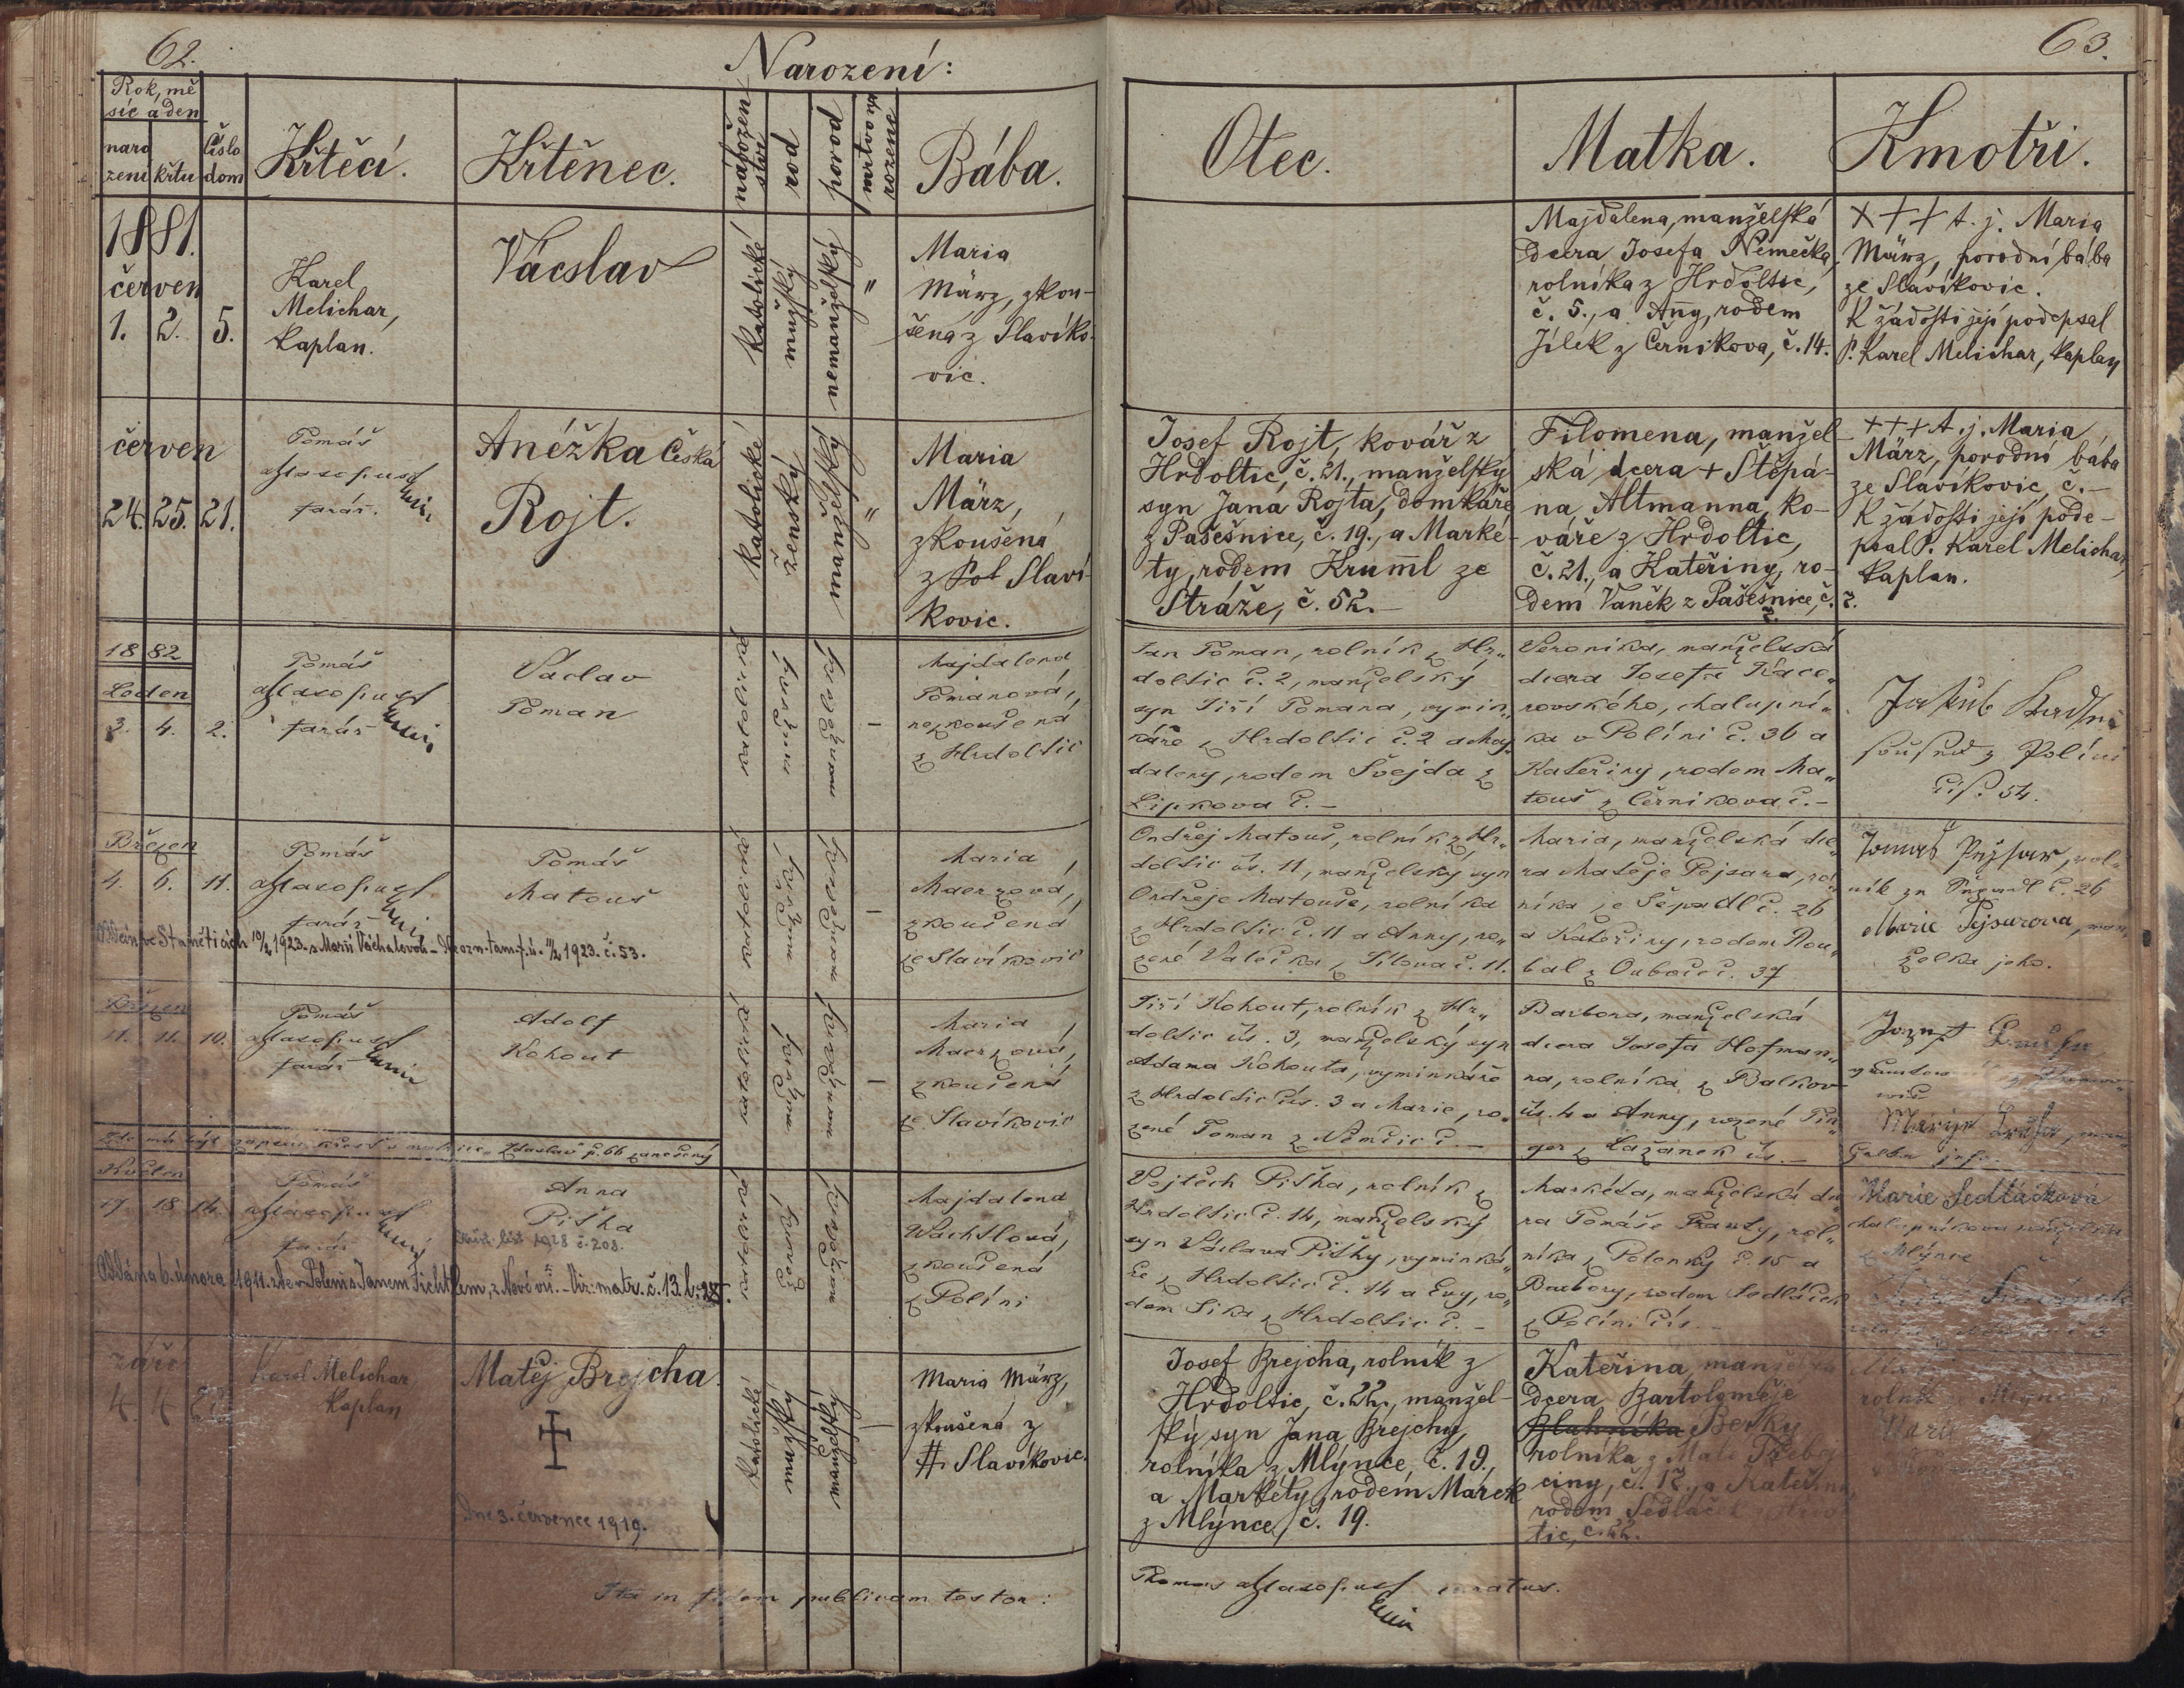 62.
Narození:
63.
Rok, mě
síc a den
naro
zení
křtu
Číslo
dom
Křtěcí.
Křtěnec.
nábožen
ství
rod
porod
mrtvo
rozené
Bába.
Otec.
Matka.
Kmotři.
1881.
červen
1. 2. 5.
Karel
Melichar,
kaplan.
Václav
katolické
mužský
nemanželský
"
Maria
März, zkou-
šená z Slavíko-
vic.
Majdalena, manželská
dcera Josefa Němečka,
rolníka z Hrdoltic,
č. 5., a Anny, rodem
Jílek z Černikova, č. 14.
+++ t. j. Maria
März, porodní bába
ze Slavíkovic.
K žádosti její podepsal
P. Karel Melichar, kaplan
červen
24. 25. 21.
Tomáš
Masopust
farář.
Anéžka Česká
Rojt.
katolické
ženská
manželský
"
Maria
März,
zkoušená
z Slaví
kovic.
Josef Rojt, kovář z
Hrdoltic, č. 21., manželský
syn Jana Rojta, domkáře
z Pašešnice, č. 19., a Marké-
ty, rodem Kruml ze
Stráže, č. 52.-
Filomena, manžel-
ská dcera + Štěpá-
na Altmanna, ko-
váře z Hrdoltic,
č. 21., a Kateřiny, ro-
dem Vaněk z Pašešnice, č. 7.
+++ t. j. Maria
März, porodní bába
ze Slavíkovic, č.-
K žádosti její pode-
psal P. Karel Melichar,
kaplan.
1882
Leden
3. 4. 2.
Tomáš
Masopust
farář
Václav
Toman
katolické
mužský
manželský
-
Majdalena
Tomanová,
nezkoušená
z Hrdoltic
Jan Toman, rolník z Hr„
doltic č. 2, manželský
syn Jiří Tomana, vymin„
káře z Hrdoltic č. 2 a Maj„
daleny, rodem Švejda z
Lipkova č. -
Veronika, manželská
dcera Josefa Kace„
rovského, chalupní„
ka v Políni č. 36 a
Kateřiny, rodem Ma„
touš z Černikova č. -
Jakub
soused z Políni
čís. 54.
Březen
4. 6. 11.
Tomáš
Masopust
farář
Tomáš
Matouš
katolické
mužský
manželský
-
Maria
Maerzová,
zkoušená
ze Slavíkovic
Ondřej Matouš, rolník z Hr„
doltic čís. 11, manželský syn
Ondřeje Matouše, rolníka
z Hrdoltic č. 11 a Anny, ro„
zené Valečka z č. 11.
Maria, manželská dce„
ra Matěje Pejsara, rol„
níka ze Šepadl č. 26
a Kateřiny, rodem Rou„
bal z Ouboče č. 37
Tomáš Pejsar, rol„
ník ze č. 26
Marie Pejsarova, man„
želka jeho.
10/2 1923. s Marií Váchalovou - 1923. č. 53.
Březen
11. 11. 10.
Tomáš
Masopust
farář
Adolf
Kohout
katolické
mužský
manželský
-
Maria
Maerzová,
zkoušená
ze Slavíkovic
Jiří Kohout, rolník z Hr„
doltic čís. 3, manželský syn
Adama Kohouta, vyminkáře
z Hrdoltic čís. 3 a Marie, ro„
zené Toman z Němčic č. -
Barbora, manželská
dcera Josefa Hofman„
na, rolníka z Balkov
čís. 4 a Anny, rozené Pin„
ger z Lažánek čís. -
Josef
Zde má být zapsán křest v matrice „Zdaslav" p. 66 zanešený
Květen
17. 18. 14.
Tomáš
Masopust
farář
Anna
Piťha
1928 č. 208.
katolické
ženský
manželský
Majdalena
Wachtlová,
zkoušená
z Políni
Vojtěch Piťha, rolník z
Hrdoltic č. 14, manželský
syn Václava Piťhy, vyminká„
ře z Hrdoltic č. 14 a Evy, ro„
dem Sika z Hrdoltic č. -
Markéta, manželská dce„
ra Tomáše Frauty, rol„
níka z Polenky č. 15 a
Barbory, rodem Sedláček
z Políni čís. -
Marie Sedláčková
z Mlýnce
Oddána 6. února 1911. ve Poleni s Janem Fichtlem, z Nové vsi. - Viz: matr. č. 13. l. 28.
září
4. 4. 22.
Karel Melichar,
kaplan
Matěj Brejcha.
Dne 3. července 1919.
katolické
mužský
manželský
-
Maria März,
zkoušená z
Slavíkovic.
Josef Brejcha, rolník z
Hrdoltic, č. 22., manžel-
ský syn Jana Brejchy,
rolníka z Mlýnce, č. 19.,
a Markéty, rodem Márek
z Mlýnce, č. 19.
Kateřina, manželská
dcera Bartoloměje
Blahníka Berky
rolníka z Malé
č. 12., a Kateřiny,
rodem Sedláček
tic, č. 22.
rolník z Mlýnce
Marie
Ita in fidem publicam testor:
Thomas Masopust curatus.